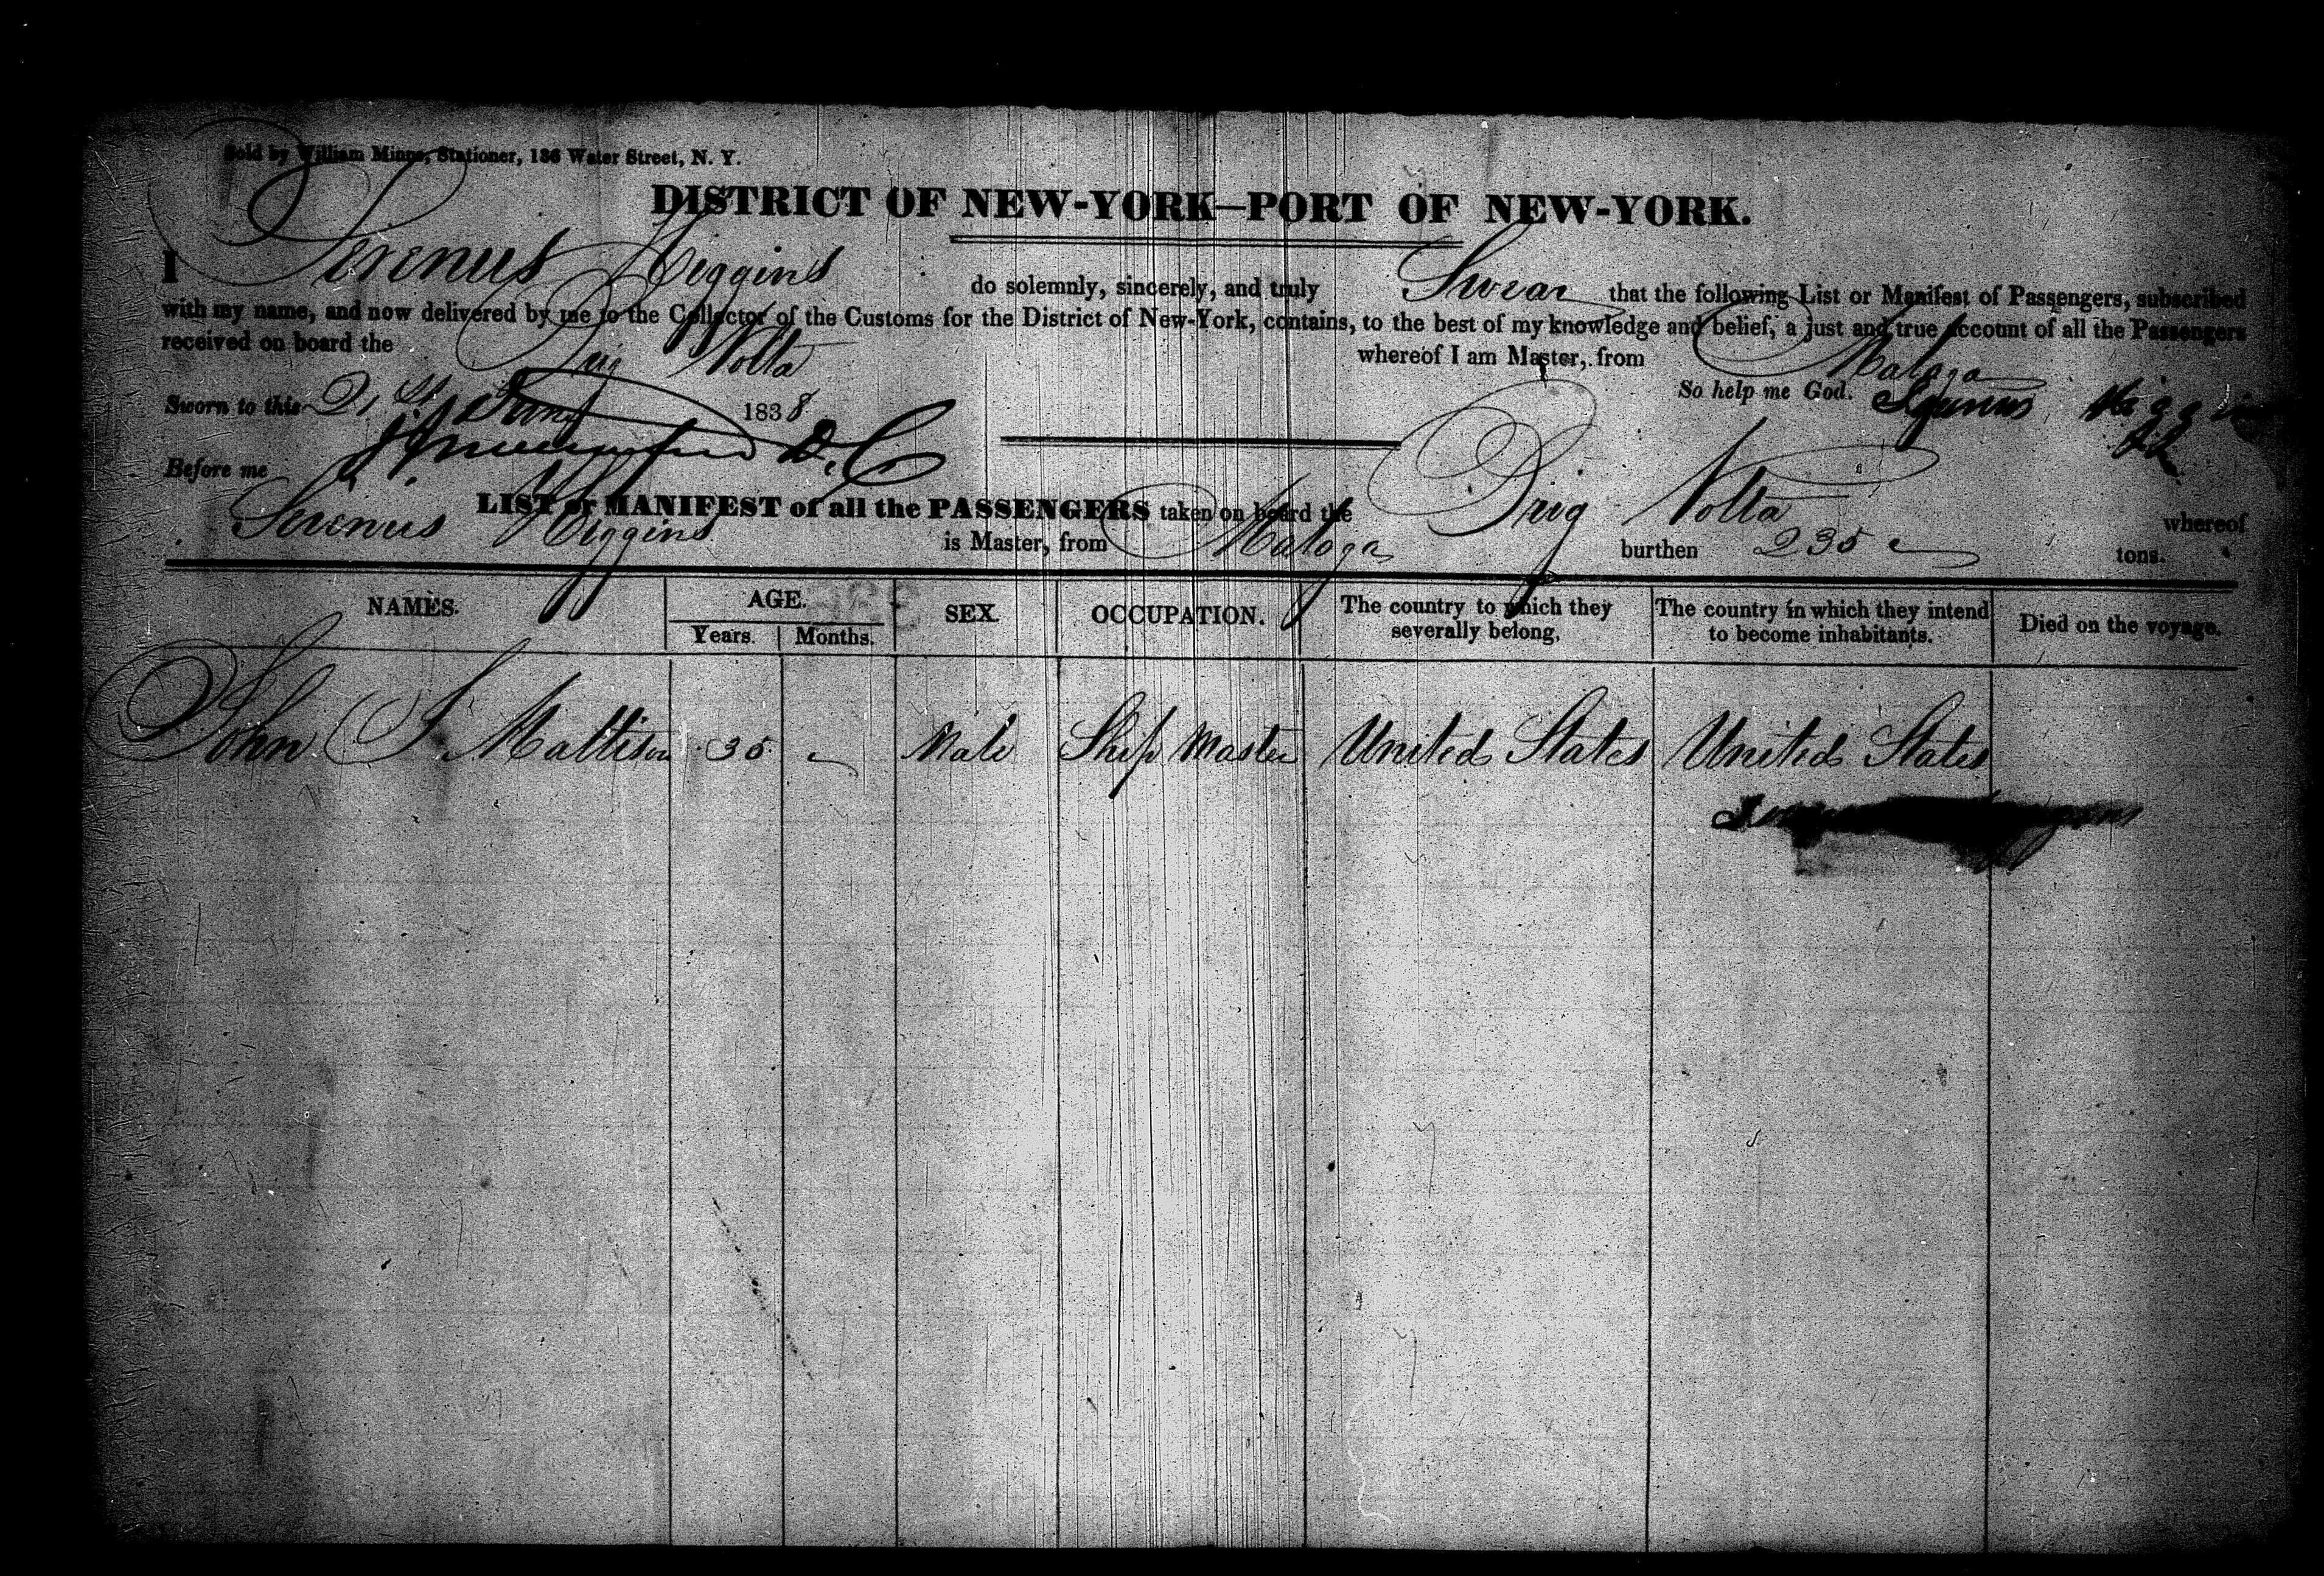 Sold by William Minns, Stationer, 136 Water Street, N. Y.
DISTRICT OF NEW-YORK—PORT OF NEW-YORK.
I Serenus Higgins do solemnly, sincerely, and truly Swear that the following List or Manifest of Passengers, subscribed
with my name, and now delivered by me to the Collector of the Customs for the District of New-York, contains, to the best of my knowledge and belief, a just and true account of all the Passengers
received on board the Brig Volta whereof I am Master, from Malaga
Sworn to this 21st 1838 So help me God. Serenus Higgins
Before me D. C
LIST or MANIFEST of all the PASSENGERS taken on board the Brig Volta whereof
Serenus Higgins is Master, from Malaga burthen 235 tons.
NAMES. AGE. SEX. OCCUPATION. The country to which they severally belong, The country in which they intend to become inhabitants. Died on the voyage.
Years. Months.
John S Mattison 35 Male Ship Master United States United States